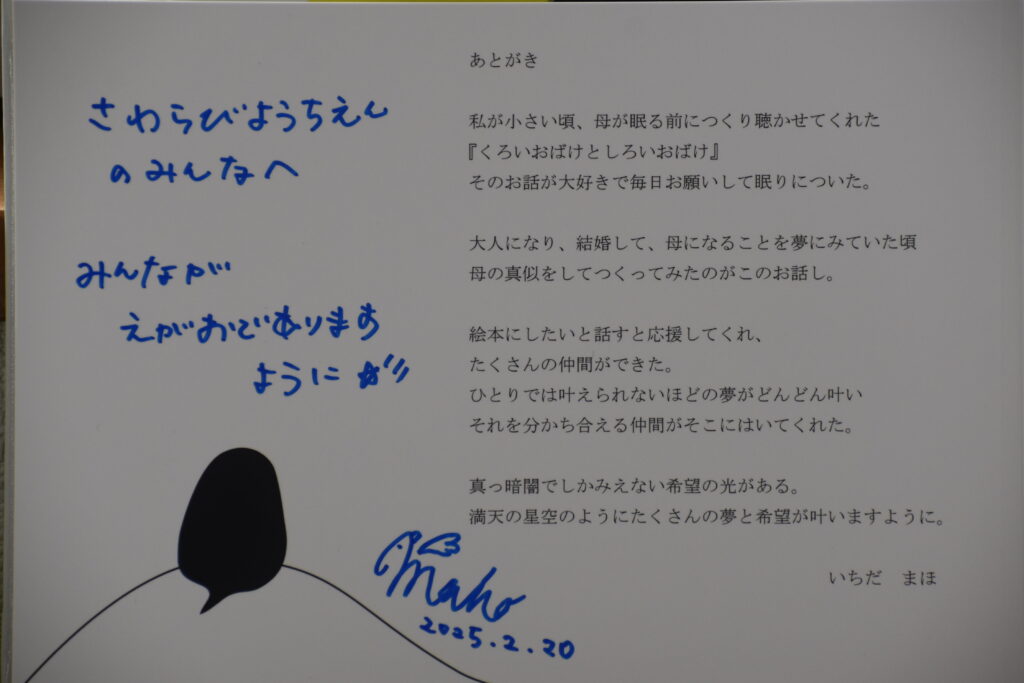 さわらびようちえん
のみんなへ
みんなが
えがおであります
ように
Maho
2025.2.20
あとがき
私が小さい頃、母が眠る前につくり聴かせてくれた
『くろいおばけとしろいおばけ』
そのお話が大好きで毎日お願いして眠りについた。
大人になり、結婚して、母になることを夢にみていた頃
母の真似をしてつくってみたのがこのお話し。
絵本にしたいと話すと応援してくれ、
たくさんの仲間ができた。
ひとりでは叶えられないほどの夢がどんどん叶い
それを分かち合える仲間がそこにはいてくれた。
真っ暗闇でしかみえない希望の光がある。
満天の星空のようにたくさんの夢と希望が叶いますように。
いちだ　まほ